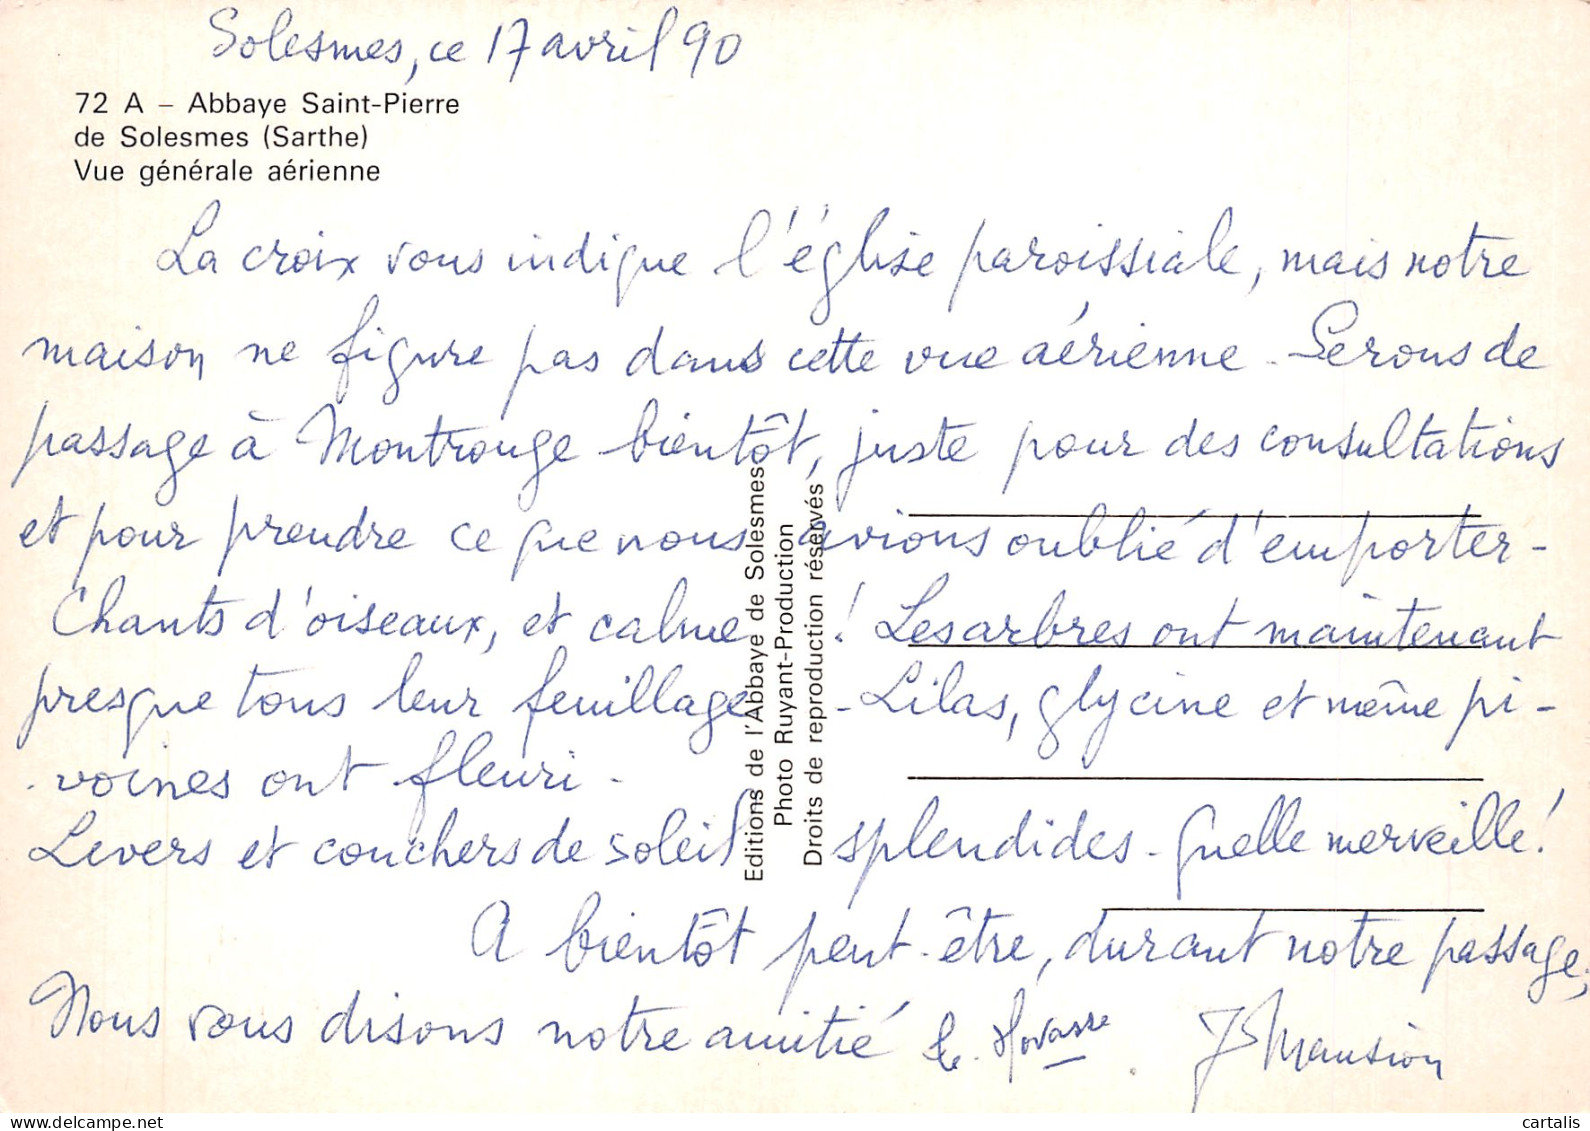 Solesmes, ce 17 avril 90
72 A – Abbaye Saint-Pierre
de Solesmes (Sarthe)
Vue générale aérienne
La croix vous indique l'église paroissiale, mais notre
maison ne figure pas dans cette vue aérienne - Serons de
passage à Montrouge bientôt, juste pour des consultations
et pour prendre ce que nous avions oublié d'emporter -
Chants d'oiseaux, et calme ! Les arbres ont maintenant
presque tous leur feuillage - Lilas, glycine et même pi-
-voines ont fleuri -
Levers et couchers de soleil splendides - Quelle merveille !
A bientôt peut-être, durant notre passage,
Nous vous disons notre amitié
J Mansion
Editions de l'Abbaye de Solesmes
Photo Ruyant-Production
Droits de reproduction réservés
www.delcampe.net
cartalis